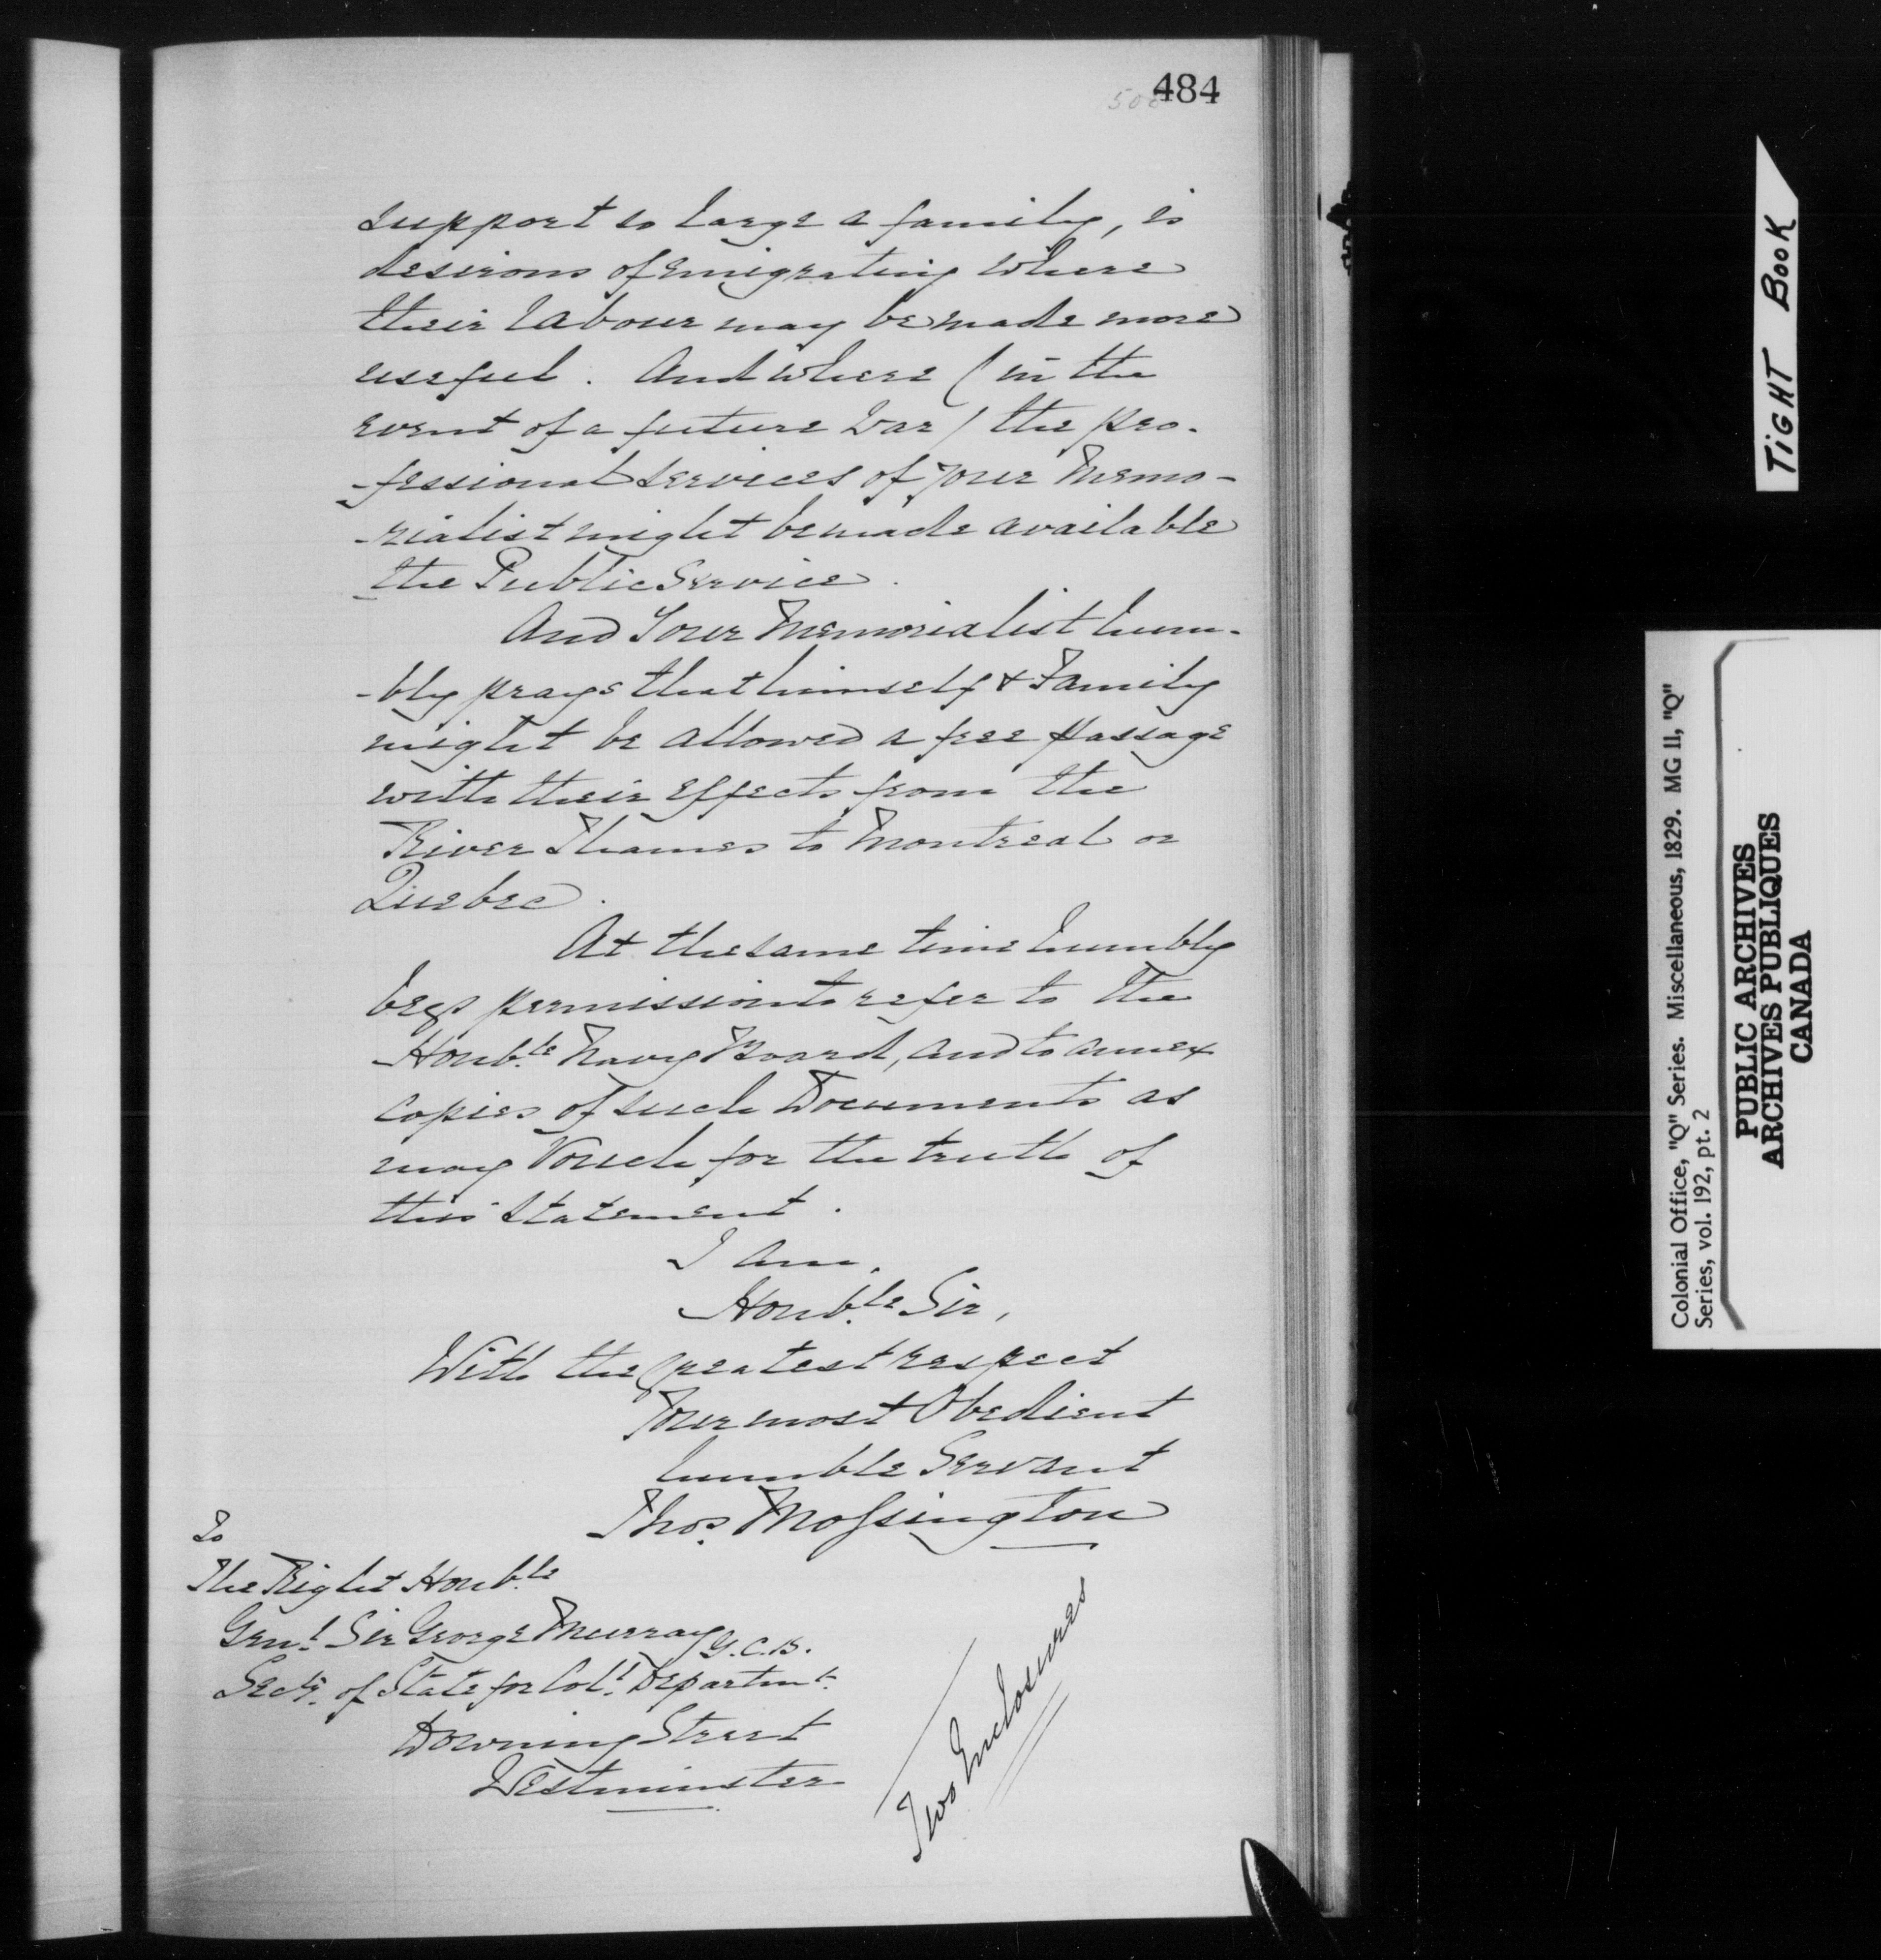 484
support so large a family, is
desirous of emigrating where
their labour may be made more
useful. And where (in the
event of a future War) the pro-
-fessional services of your Memo-
-rialist might be made available
the Public Service.
And Your Memorialist hum-
-bly prays that himself & Family
might be allowed a free passage
with their effects from the
River Thames to Montreal or
Quebec.
At the same time humbly
begs permission to refer to the
Honb.le Navy Board, and to annex
copies of such Documents as
may Vouch for the truth of
this Statement.
I am,
Honb.le Sir,
With the greatest respect
Your most Obedient
humble Servant
Thos. Mossington
To
The Right Honb.le
Genl. Sir George Murray G.C.B.
Secty. of State for Coll. Departmt.
Downing Street
Westminster
Two Enclosures
TiGHT BOOK
Colonial Office, "Q" Series. Miscellaneous, 1829. MG 11, "Q"
Series, vol. 192, pt. 2
PUBLIC ARCHIVES
ARCHIVES PUBLIQUES
CANADA